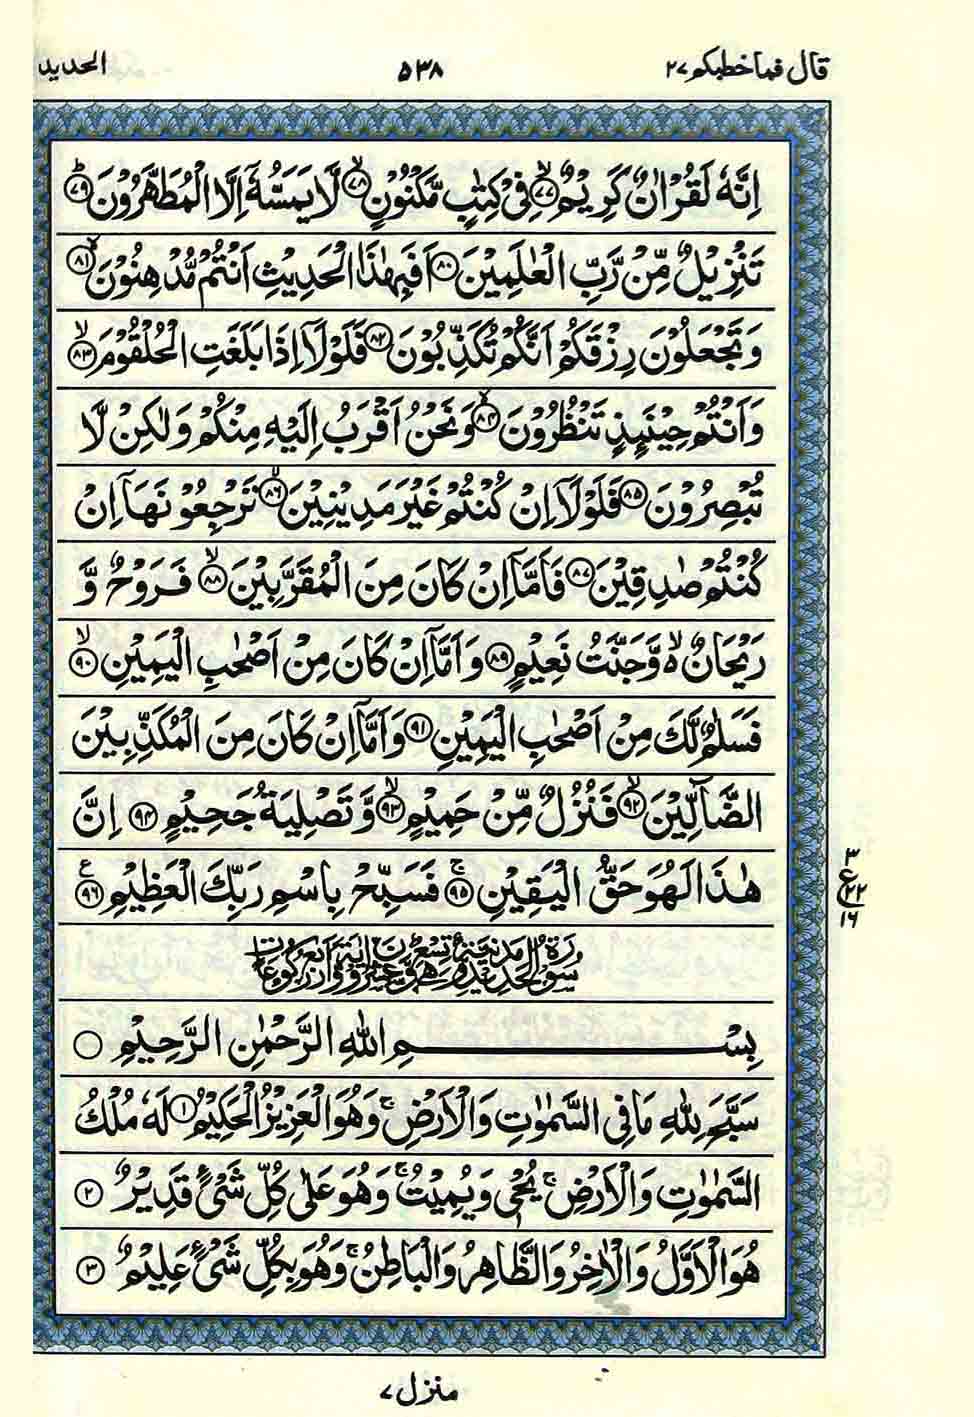 قال فما خطبكم ٢٧ ٥٣٨ الحديد
اِنَّهٗ لَقُرْاٰنٌ كَرِيْمٌۙ ﴿٧٧﴾ فِيْ كِتٰبٍ مَّكْنُوْنٍۙ ﴿٧٨﴾ لَّا يَمَسُّهٗۤ اِلَّا الْمُطَهَّرُوْنَؕ ﴿٧٩﴾
تَنْزِيْلٌ مِّنْ رَّبِّ الْعٰلَمِيْنَ ﴿٨٠﴾ اَفَبِهٰذَا الْحَدِيْثِ اَنْتُمْ مُّدْهِنُوْنَۙ ﴿٨١﴾
وَتَجْعَلُوْنَ رِزْقَكُمْ اَنَّكُمْ تُكَذِّبُوْنَ ﴿٨٢﴾ فَلَوْلَاۤ اِذَا بَلَغَتِ الْحُلْقُوْمَۙ ﴿٨٣﴾
وَاَنْتُمْ حِيْنَىِٕذٍ تَنْظُرُوْنَۙ ﴿٨٤﴾ وَنَحْنُ اَقْرَبُ اِلَيْهِ مِنْكُمْ وَلٰكِنْ لَّا
تُبْصِرُوْنَ ﴿٨٥﴾ فَلَوْلَاۤ اِنْ كُنْتُمْ غَيْرَ مَدِيْنِيْنَۙ ﴿٨٦﴾ تَرْجِعُوْنَهَاۤ اِنْ
كُنْتُمْ صٰدِقِيْنَ ﴿٨٧﴾ فَاَمَّاۤ اِنْ كَانَ مِنَ الْمُقَرَّبِيْنَۙ ﴿٨٨﴾ فَرَوْحٌ وَّ
رَيْحَانٌ ۙ۬ وَّجَنَّتُ نَعِيْمٍ ﴿٨٩﴾ وَاَمَّاۤ اِنْ كَانَ مِنْ اَصْحٰبِ الْيَمِيْنِۙ ﴿٩٠﴾
فَسَلٰمٌ لَّكَ مِنْ اَصْحٰبِ الْيَمِيْنِ ﴿٩١﴾ وَاَمَّاۤ اِنْ كَانَ مِنَ الْمُكَذِّبِيْنَ
الضَّآلِّيْنَۙ ﴿٩٢﴾ فَنُزُلٌ مِّنْ حَمِيْمٍۙ ﴿٩٣﴾ وَّتَصْلِيَةُ جَحِيْمٍ ﴿٩٤﴾ اِنَّ
هٰذَا لَهُوَ حَقُّ الْيَقِيْنِۚ ﴿٩٥﴾ فَسَبِّحْ بِاسْمِ رَبِّكَ الْعَظِيْمِ ﴿٩٦﴾ ع
٣
ع ٢٢
١٦
سُوْرَةُ الْحَدِيْدِ مَدَنِيَّةٌ وَّهِيَ تِسْعٌ وَّعِشْرُوْنَ اٰيَةً وَّاَرْبَعُ رُكُوْعَاتٍ
بِسْمِ اللهِ الرَّحْمٰنِ الرَّحِيْمِ
سَبَّحَ لِلّٰهِ مَا فِي السَّمٰوٰتِ وَالْاَرْضِۚ وَهُوَ الْعَزِيْزُ الْحَكِيْمُ ﴿١﴾ لَهٗ مُلْكُ
السَّمٰوٰتِ وَالْاَرْضِۚ يُحْيٖ وَيُمِيْتُۚ وَهُوَ عَلٰى كُلِّ شَيْءٍ قَدِيْرٌ ﴿٢﴾
هُوَ الْاَوَّلُ وَالْاٰخِرُ وَالظَّاهِرُ وَالْبَاطِنُۚ وَهُوَ بِكُلِّ شَيْءٍ عَلِيْمٌ ﴿٣﴾
منزل ٧